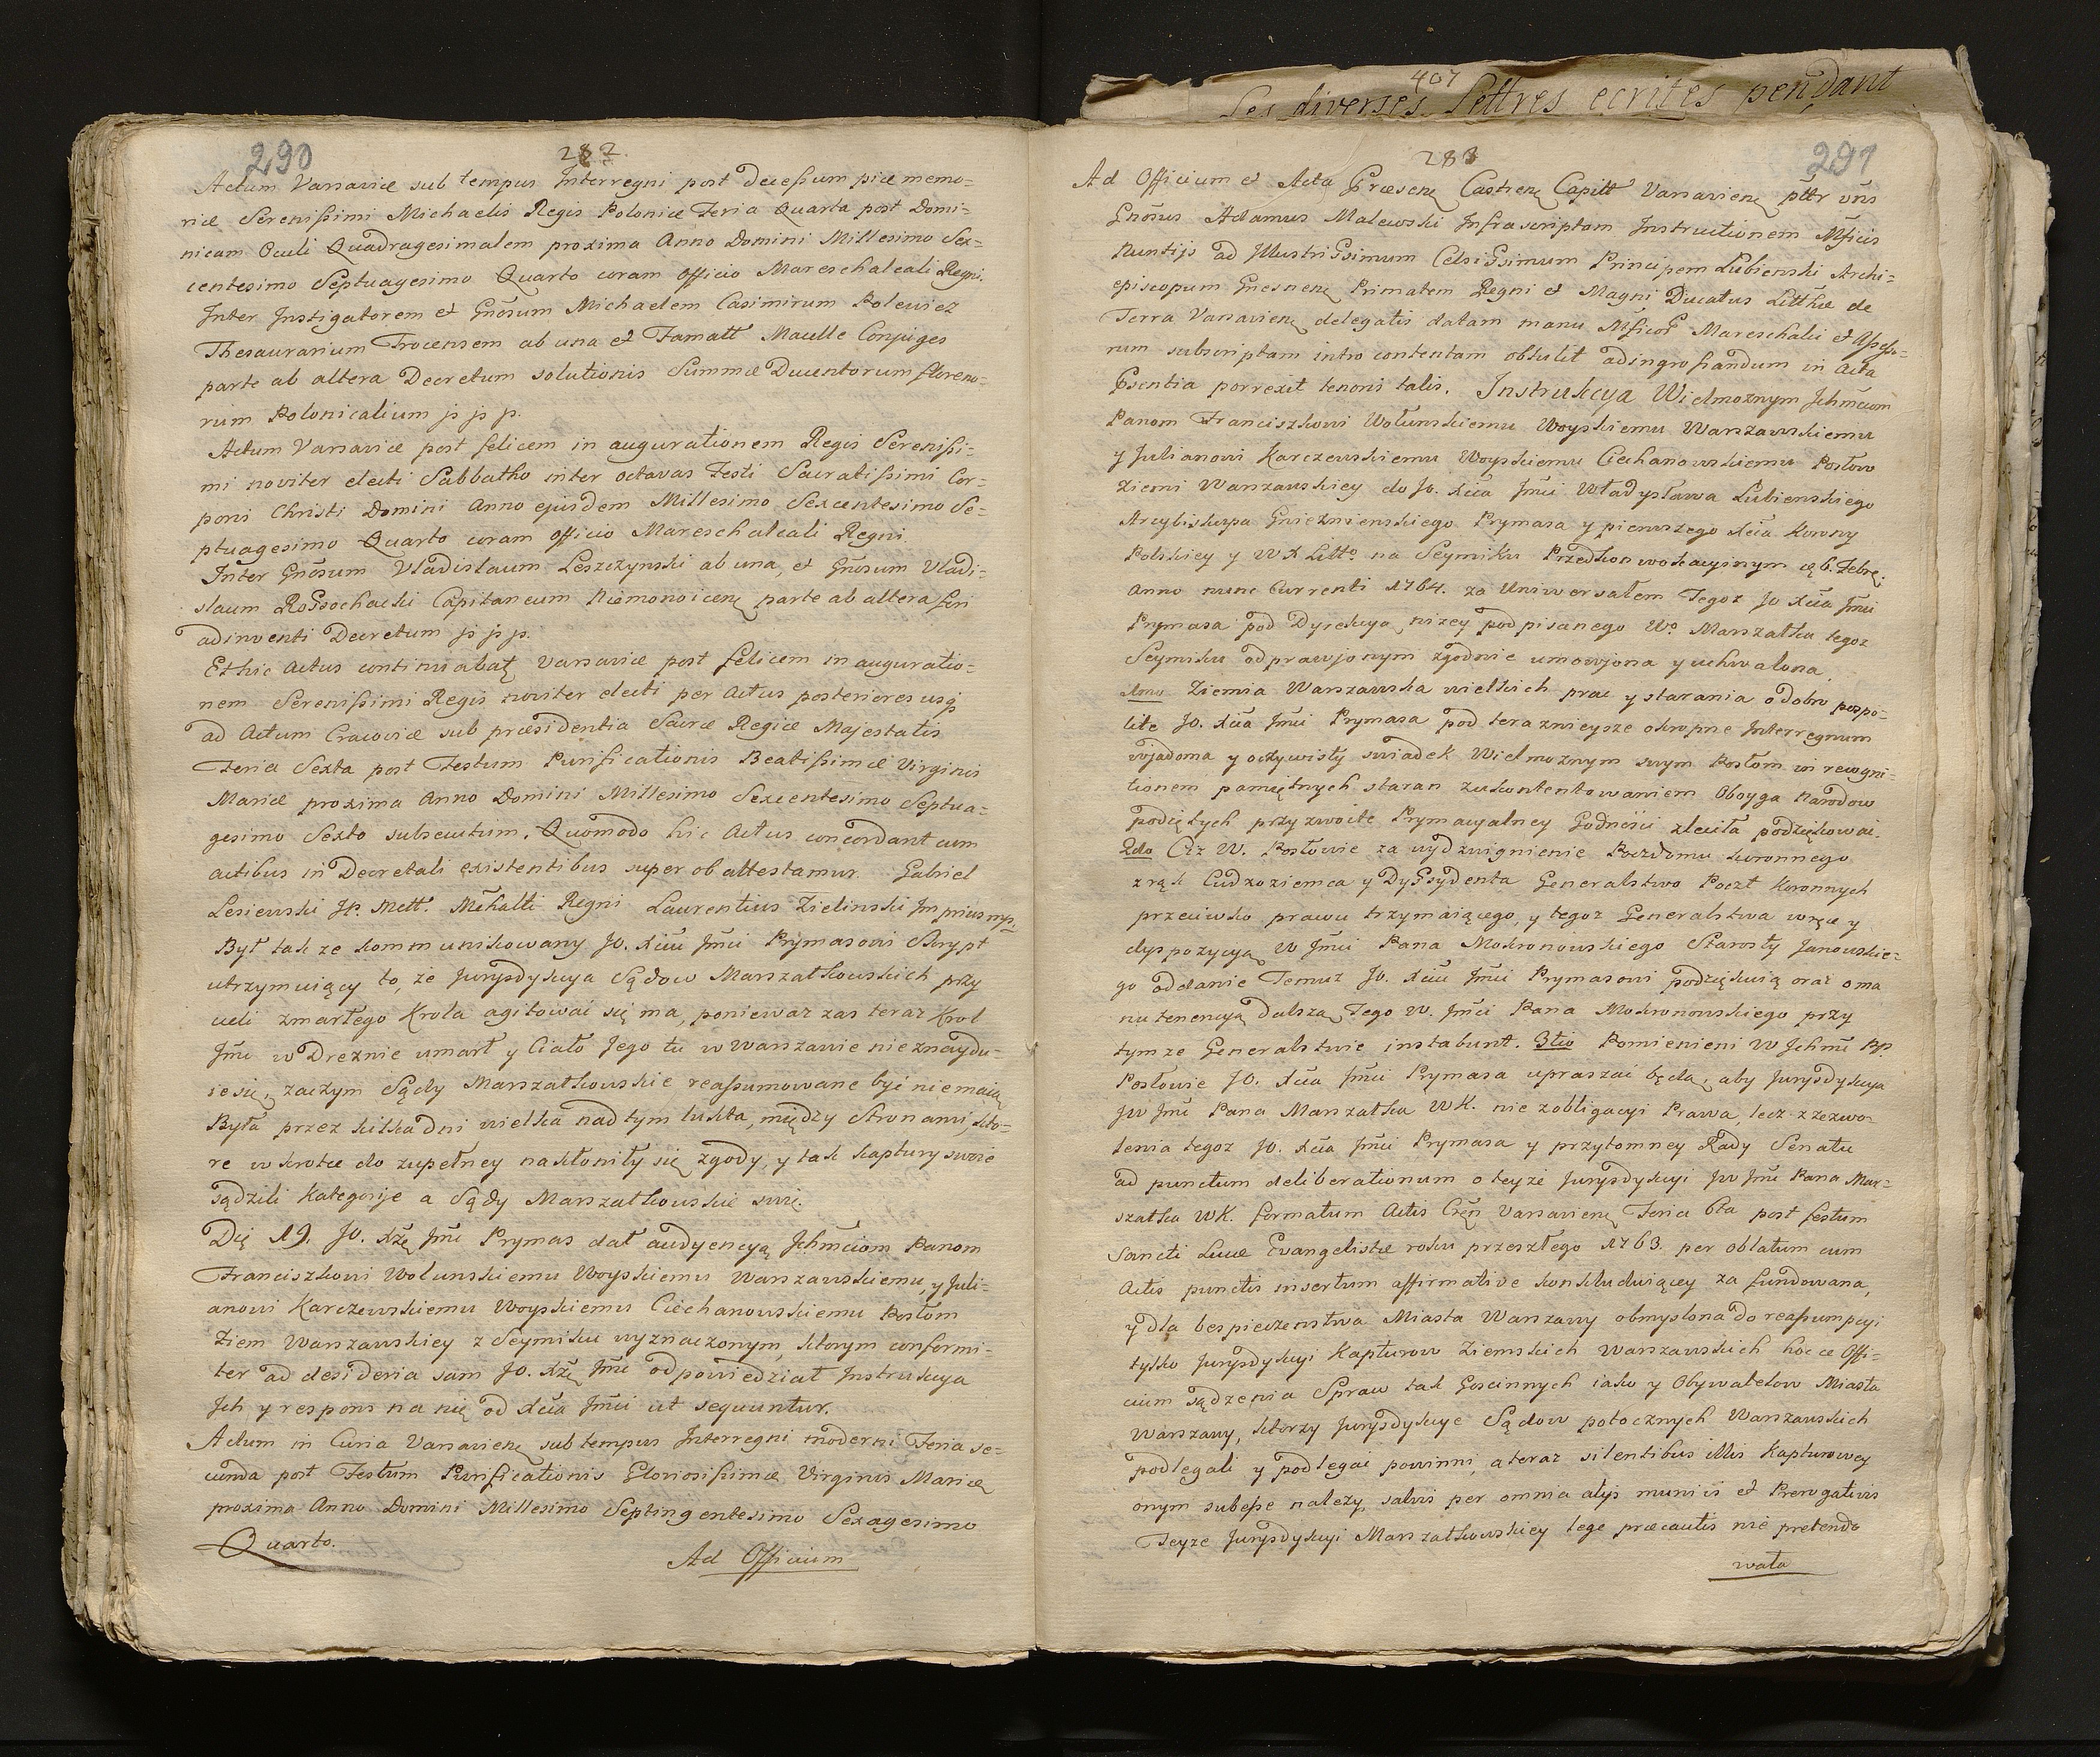 290
282
Actum Varsaviæ sub tempus Interregni post decessum piæ memo=
riæ Serenissimi Michaelis Regis Poloniæ Feria Quarta post Domi=
nicam Oculi Quadragesimalem proxima Anno Domini Millesimo Sex=
centesimo Septuagesimo Quarto coram Officio Mareschalcali Regni.
Inter Instigatorem et Gnosum Michaelem Casimirum Polewicz
Thesaurarium Trocensem ab una et Famatt Maulle Conjuges
parte ab altera Decretum solutionis Summæ Ducentorum floreno=
rum Polonicalium p p p.
Actum Varsaviæ post felicem in augurationem Regis Serenissi=
mi noviter electi Sabbatho inter octavas Festi Sacratissimi Cor=
poris Christi Domini Anno ejusdem Millesimo Sexcentesimo Se=
ptuagesimo Quarto coram Officio Mareschalcali Regni.
Inter Gnosum Vladislaum Leszczynski ab una, et Gnosum Vladi=
slaum Rossochacki Capitaneum parte ab altera fori
adinventi Decretum p p p.
Et hic Actus continuabatę Varsaviæ post felicem in auguratio=
nem Serenissimi Regis noviter electi per Actus posteriores usq
ad Actum Cracoviæ sub præsidentia Sacræ Regiæ Majestatis
Feria Sexta post Festum Purificationis Beatissimæ Virginis
Mariæ proxima Anno Domini Millesimo Sexcentesimo Septua=
gesimo Sexto subsecutum. Quomodo hic Actus concordant cum
actibus in Decretali existentibus super ob attestamur. Gabriel
Lesiewski Jp. Mett. Mchalti Regni Laurentius Zielinski Im prius mp.
Był tak ze kommunikowany Jo. Xciu Jmci Prymasowi Skrypt
utrzymuiący to, że Jurysdykcya Sądow Marszałkowskich przy
ciele zmarłego Krola agitować się ma, poniewaz zas teraz Krol
Jmc w Dreznie umarł y Ciało Jego tu w Warszawie nie znaydu=
ie się, zaczym Sądy Marszałkowskie reassumowane być nie maią
Była przez kilka dni wielka nad tym lukta, między Stronami, kto=
re w krotce do zupełney nakłoniły się zgody, y tak kaptury swoie
sądzili Kategorije a Sądy Marszałkowskie swoie.
Dię 19. Jo. Xże Jmc Prymas dał audyencyą Jchmciom Panom
Franciszkowi Wolunskiemu Woyskiemu Warszawskiemu, y Juli=
anowi Karczewskiemu Woyskiemu Ciechanowskiemu Posłom
Ziem Warszawskiey z Seymiku wyznaczonym, ktorym conformi=
ter ad desideria sam Jo. Xżę Jmc odpowiedział Instrukcya
Jch y respons na nię od Xcia Jmci ut sequuntur.
Actum in Curia Varsavienę sub tempus Interregni moderni Feria se=
cunda post Festum Purificationis Gloriosissimæ Virginis Mariæ
proxima Anno Domini Millesimo Septingentesimo Sexagesimo
Quarto.
Ad Officium
407
Les diverses Lettres ecrites pendant
283
291
Ad Officium et Acta Præsenę Castrenę Capitt Varsavienę pttr vns
Gnosus Adamus Malewski Infrascriptam Instructionem Mficis
Nuntijs ad Illustrissimum Celsissimum Principem Lubienski Archi=
episcopum Gnesnenę Primatem Regni et Magni Ducatus Litthuæ de
Terra Varsavienę delegatis datam manu Mficor Mareschalci et Assesso=
rum subscriptam intro contentam obtulit ad ingrossandum in Acta
Psentia porrexit tenoris talis. Instrukcya Wielmoznym Jchmciom
Panom Franciszkowi Wolunskiemu Woyskiemu Warszawskiemu
y Julianowi Karczewskiemu Woyskiemu Ciechanowskiemu Posłow
Ziemi Warszawskiey do Jo. Xcia Jmci Władysława Lubienskiego
Arcybiskupa Gnieznienskiego Prymasa y pierwszego Xcia Korony
Polskiey y W X Litto. na Seymiku Przedkonwokacyinym d. 6. Febr:
Anno nunc Currenti 1764. za Uniwersałem Tegoz Jo Xcia Jmci
Prymasa pod Dyrekcyą nizey podpisanego Wo. Marszałka tegoz
Seymiku odprawionym zgodnie umowjona y uchwalona.
1mo Ziemia Warszawska wielkich prac y starania o dobro pospo=
lite Jo. Xcia Jmci Prymasa pod teraznieysze okropne Interregnum
wjadoma y oczywisty swiadek Wielmoznym swym Posłom in recogni=
tionem pamiętnych staran z ukontentowaniem Oboyga Narodow
podiętych przyzwoite Prymacyalney Godności zleciła podziękować.
2do Ciz W. Posłowie za wydzwignienie Poczdomu koronnego
z rąk Cudzoziemca y Dyssydenta Generalstwo Poczt Koronnych
przeciwko prawu trzymaiącego, y tegoz Generalstwa w ręce y
dyspozycyą W Jmci Pana Mokronowskiego Starosty Janowskie=
go oddanie Temuz Jo. Xciu Jmci Prymasowi podziękuią oraz o ma
nutenencyą dalszą Tego W. Jmci Pana Mokronowskiego przy
tymze Generalstwie instabunt. 3tio Pomienieni W Jchmc PP.
Posłowie JO. Xcia Jmci Prymasa upraszać będą, aby Jurysdykcya
Jw Jmc Pana Marszałka WK. nie z obligacyi Prawa, lecz z zezwo
lenia tegoz Jo. Xcia Jmci Prymasa y przytomney Rady Senatu
ad punctum deliberationum o teyże Jurysdykcyi Jw Jmc Pana Mar=
szałka WK. formatum Actis Crēn Varsavienę Feria 6ta post festum
Sancti Lucæ Evangelistæ roku przeszłego 1763. per oblatum cum
Actis punctis insertum affirmative konkluduiącey za fundowana,
y dla bespieczenstwa Miasta Warszawy obmyslona do reassumpcyi
tylko Jurysdykcyi Kapturow Ziemskich Warszawskich hocce Offi=
cium sądzenia Spraw tak Goscinnych iako y Obywatelow Miasta
Warszawy, ktorzy Jurysdykcye Sądow potocznych Warszawskich
podlegali y podlegać powinni, a teraz silentibus illis Kapturowey
onym subesse nalezy, salvis per omnia alijs muniis et Prerogativis
Teyze Jurysdykcyi Marszałkowskiey lege præcautis nie pretendo
wała